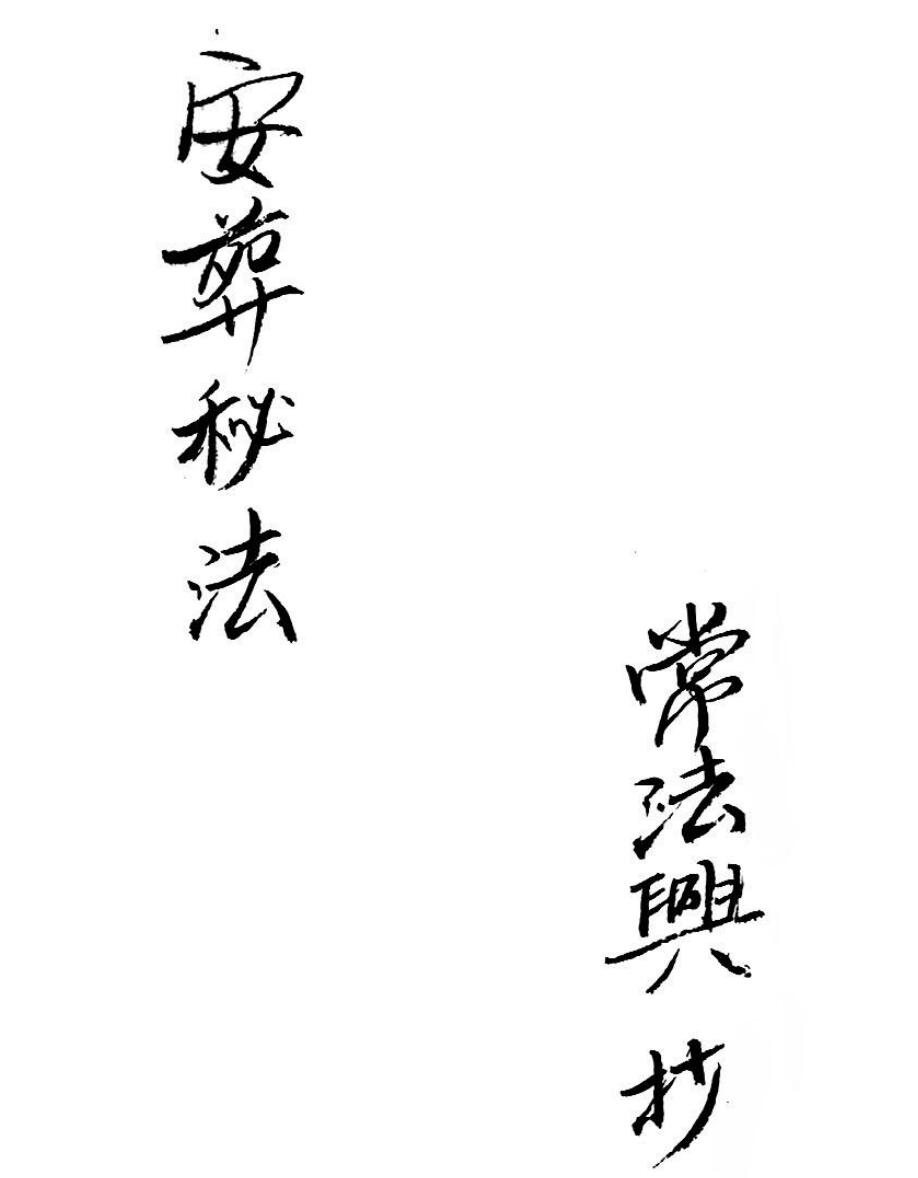 安葬秘法
常法興 抄